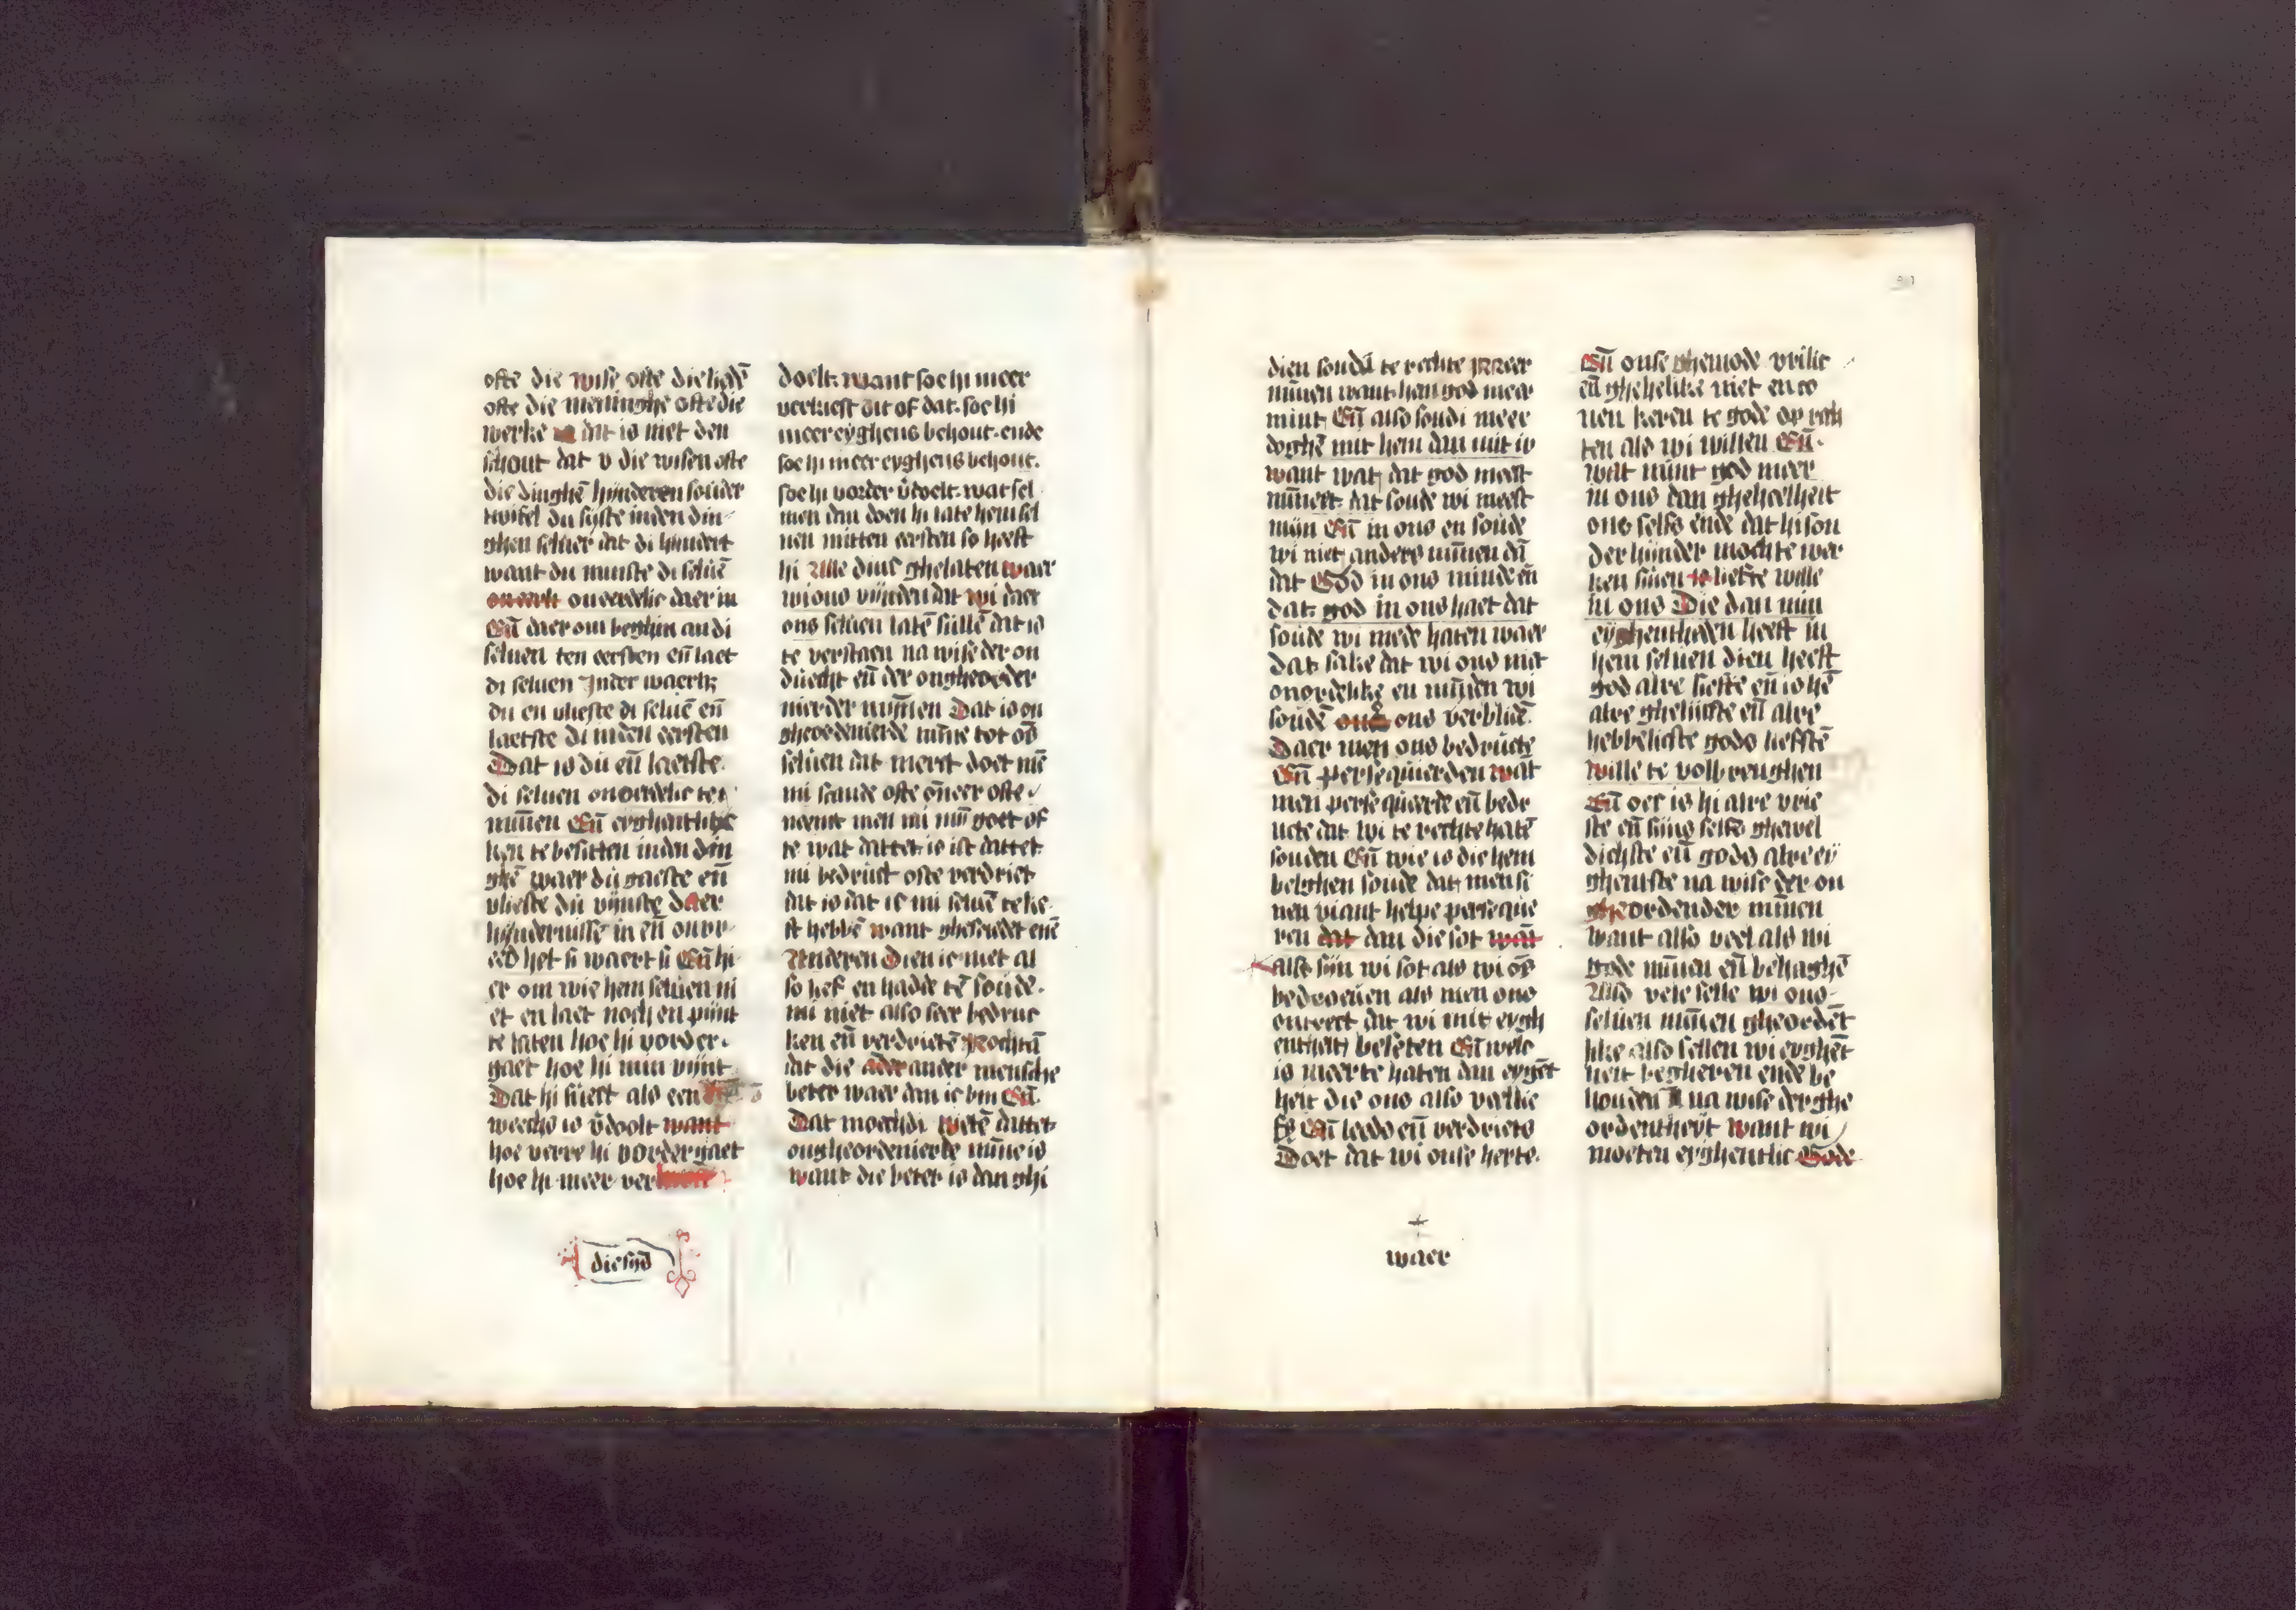 ofte die wise ofte die lidē
ofte die meninghe ofte die
werke dat is niet den
schout dat v die wisen ofte
die dinghē hynderen sonder
twifel du syste inden din
ghen seluer dat di hindert
want du minste di seluē
onverdelic daer in
Eñ daer om beghin an di
seluen ten eersten eñ laet
di seluen Inder waerh;
du en vlieste di seluē eñ
laetste di inden eersten
Dat is du eñ laetste
di seluen onverdelic te
minnen Eñ eyghentlic
ken te besitten inden din
ghē waer du gaeste eñ
vlieste du vijnste daer
hyndernisse in eñ onvr
eed het si waert si Eñ hi
er om wie hem seluen ni
et en laet noch en pijnt
te laten hoe hi vorder
gaet hoe hi min vijnt
Dat hi suect als een
weechs is v̄doolt want
hoe verre hi vordergaet
hoe hi meer ver
diesijd
doelt. want soe hi meer
verkiest dit of dat. soe hi
meer eyghens behout. ende
soe hi meer eyghens behout.
soe hi vorder v̄doelt. wat sel
men dan doen hi late hem sel
uen mitten eersten so heeft
hi Alle dinc ghelaten waer
wi ons vijnden dat wi daer
ons seluen latē sullē dat is
te verstaen na wise der on
duecht eñ der ongheorder
nierder minnen Dat is on
gheordenierde minne tot ōs
seluen dat merct doet mē
mi scande ofte oneer ofte
neemt men mi mijn goet of
te wat dattet is ist dattet
mi bedruct ofte verdriet
dat is dat ic mi seluē te lie
ft hebbē want ghesciedet enē
Anderen Dien ic niet al
so lief en hadde tē soude
mi niet also seer bedruc
ken eñ verdrietē Nochtā
dat die ander mensche
beter waer dan ic bin Eñ
Dat moechdi wetē dattet
ongheordenierde minne is
want die beter is dan ghi
dien soudi te rechte meer
minnen want hen god meer
mint Eñ also soudi meer
doghē mit hem dan mit iv
want wat dat god meest
minnet dat soude wi meest
mijn Eñ in ons en soude
wi niet anders minnen dā
dat God in ons minde eñ
dat god in ons haet dat
soude wi mede haten waer
dat sake dat wi ons niet
onordelike en minden wi
soudē ons verblidē
Daer men ons bedructe
Eñ persequeerden wāt
men persequeerde eñ bedr
ucte dat wi te rechte hatē
souden Eñ wie is die hem
belghen soude dat men si
nen viant helpe perseque
ren dat dan die sot wāt
alst sijn wi sot als wi ōs
bedroeuen als men ons
ontrect dat wi mit eygh
entheit beseten Eñ welc
is meer te haten dan eygēt
heit die ons also verlie
se Eñ leeds eñ verdriets
Doet dat wi onse herte
waer
Eñ onse ghemode vrilic
eñ ghehelike niet en co
nen keren te gode op rech
ten als wi willen Eñ
wat mint god meer
in ons dan gheheelheit
ons selfs ende dat hi son
der hinder mochte wer
ken sinen liefste wille
in ons Die dan min
eyghentheden heeft in
hem seluen dien heeft
god alre liefste eñ is hē
alre ghelijcste eñ alre
hebbelicste gods liefstē
wille te volbrenghen
Eñ oec is hi alre vrie
ste eñ sijns selfs ghewel
dichste eñ gods alre ey
ghentste na wise der on
gheordender minnen
want also veel als wi
gode minnen eñ behaghē
Also vele selle wi ons
seluen minnen gheordēt
like also sellen wi eyghēt
heit begheren ende be
houden na wise der ghe
ordentheyt want wi
moeten eyghentlic Gode